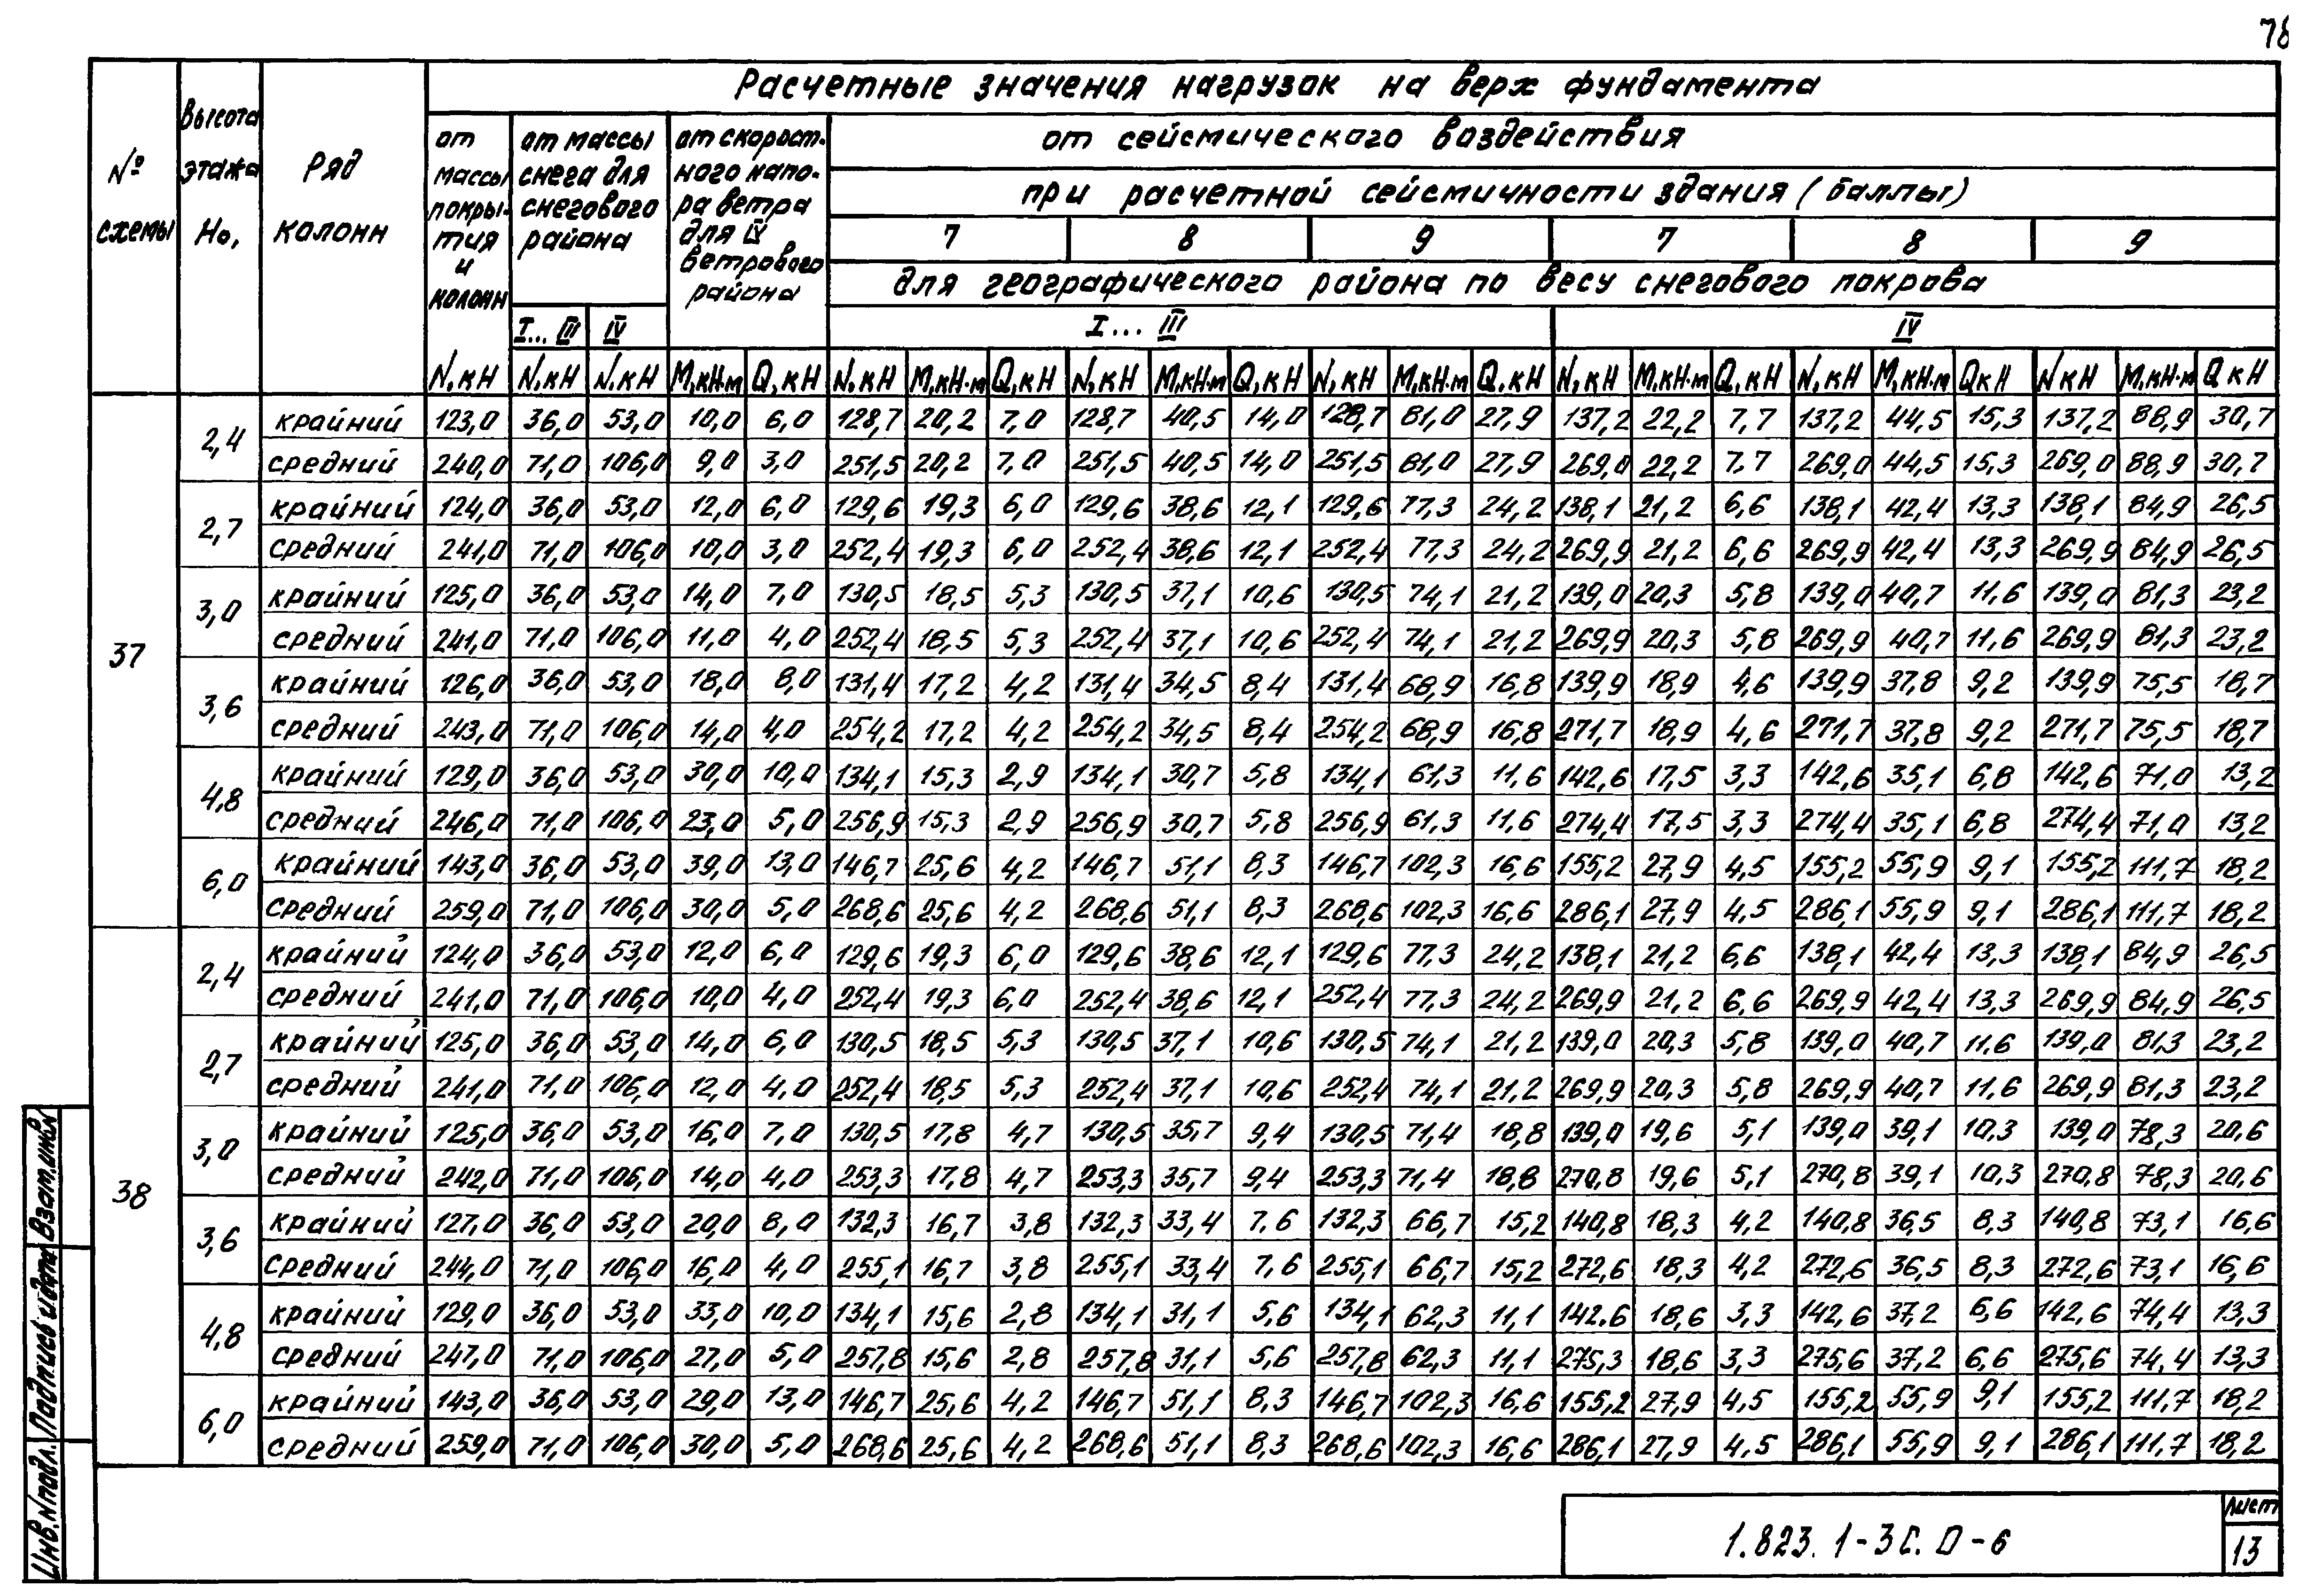 78
Расчетные значения нагрузок на верх фундамента
№ схемы
Высота этажа Но,
Ряд колонн
от массы покрытия и колонн
от массы снега для снегового района
от скоростного напора ветра для IV ветрового района
от сейсмического воздействия
при расчетной сейсмичности здания (баллы)
7 8 9 7 8 9
для географического района по весу снегового покрова
I... III IV I... III IV
N,кН N,кН N,кН М,кН·м Q,кН N,кН М,кН·м Q,кН N,кН М,кН·м Q,кН N,кН М,кН·м Q,кН N,кН М,кН·м Q,кН N,кН М,кН·м QкН NкН М,кН·м QкН
37
2,4 крайний 123,0 36,0 53,0 10,0 6,0 128,7 20,2 7,0 128,7 40,5 14,0 128,7 81,0 27,9 137,2 22,2 7,7 137,2 44,5 15,3 137,2 88,9 30,7
средний 240,0 71,0 106,0 9,0 3,0 251,5 20,2 7,0 251,5 40,5 14,0 251,5 81,0 27,9 269,0 22,2 7,7 269,0 44,5 15,3 269,0 88,9 30,7
2,7 крайний 124,0 36,0 53,0 12,0 6,0 129,6 19,3 6,0 129,6 38,6 12,1 129,6 77,3 24,2 138,1 21,2 6,6 138,1 42,4 13,3 138,1 84,9 26,5
средний 241,0 71,0 106,0 10,0 3,0 252,4 19,3 6,0 252,4 38,6 12,1 252,4 77,3 24,2 269,9 21,2 6,6 269,9 42,4 13,3 269,9 84,9 26,5
3,0 крайний 125,0 36,0 53,0 14,0 7,0 130,5 18,5 5,3 130,5 37,1 10,6 130,5 74,1 21,2 139,0 20,3 5,8 139,0 40,7 11,6 139,0 81,3 23,2
средний 241,0 71,0 106,0 11,0 4,0 252,4 18,5 5,3 252,4 37,1 10,6 252,4 74,1 21,2 269,9 20,3 5,8 269,9 40,7 11,6 269,9 81,3 23,2
3,6 крайний 126,0 36,0 53,0 18,0 8,0 131,4 17,2 4,2 131,4 34,5 8,4 131,4 68,9 16,8 139,9 18,9 4,6 139,9 37,8 9,2 139,9 75,5 18,7
средний 243,0 71,0 106,0 14,0 4,0 254,2 17,2 4,2 254,2 34,5 8,4 254,2 68,9 16,8 271,7 18,9 4,6 271,7 37,8 9,2 271,7 75,5 18,7
4,8 крайний 129,0 36,0 53,0 30,0 10,0 134,1 15,3 2,9 134,1 30,7 5,8 134,1 61,3 11,6 142,6 17,5 3,3 142,6 35,1 6,8 142,6 71,0 13,2
средний 246,0 71,0 106,0 23,0 5,0 256,9 15,3 2,9 256,9 30,7 5,8 256,9 61,3 11,6 274,4 17,5 3,3 274,4 35,1 6,8 274,4 71,0 13,2
6,0 крайний 143,0 36,0 53,0 39,0 13,0 146,7 25,6 4,2 146,7 51,1 8,3 146,7 102,3 16,6 155,2 27,9 4,5 155,2 55,9 9,1 155,2 111,7 18,2
средний 259,0 71,0 106,0 30,0 5,0 268,6 25,6 4,2 268,6 51,1 8,3 268,6 102,3 16,6 286,1 27,9 4,5 286,1 55,9 9,1 286,1 111,7 18,2
38
2,4 крайний 124,0 36,0 53,0 12,0 6,0 129,6 19,3 6,0 129,6 38,6 12,1 129,6 77,3 24,2 138,1 21,2 6,6 138,1 42,4 13,3 138,1 84,9 26,5
средний 241,0 71,0 106,0 10,0 4,0 252,4 19,3 6,0 252,4 38,6 12,1 252,4 77,3 24,2 269,9 21,2 6,6 269,9 42,4 13,3 269,9 84,9 26,5
2,7 крайний 125,0 36,0 53,0 14,0 6,0 130,5 18,5 5,3 130,5 37,1 10,6 130,5 74,1 21,2 139,0 20,3 5,8 139,0 40,7 11,6 139,0 81,3 23,2
средний 241,0 71,0 106,0 12,0 4,0 252,4 18,5 5,3 252,4 37,1 10,6 252,4 74,1 21,2 269,9 20,3 5,8 269,9 40,7 11,6 269,9 81,3 23,2
3,0 крайний 125,0 36,0 53,0 16,0 7,0 130,5 17,8 4,7 130,5 35,7 9,4 130,5 71,4 18,8 139,0 19,6 5,1 139,0 39,1 10,3 139,0 78,3 20,6
средний 242,0 71,0 106,0 14,0 4,0 253,3 17,8 4,7 253,3 35,7 9,4 253,3 71,4 18,8 270,8 19,6 5,1 270,8 39,1 10,3 270,8 78,3 20,6
3,6 крайний 127,0 36,0 53,0 20,0 8,0 132,3 16,7 3,8 132,3 33,4 7,6 132,3 66,7 15,2 140,8 18,3 4,2 140,8 36,5 8,3 140,8 73,1 16,6
средний 244,0 71,0 106,0 16,0 4,0 255,1 16,7 3,8 255,1 33,4 7,6 255,1 66,7 15,2 272,6 18,3 4,2 272,6 36,5 8,3 272,6 73,1 16,6
4,8 крайний 129,0 36,0 53,0 33,0 10,0 134,1 15,6 2,8 134,1 31,1 5,6 134,1 62,3 11,1 142,6 18,6 3,3 142,6 37,2 6,6 142,6 74,4 13,3
средний 247,0 71,0 106,0 27,0 5,0 257,8 15,6 2,8 257,8 31,1 5,6 257,8 62,3 11,1 275,3 18,6 3,3 275,6 37,2 6,6 275,6 74,4 13,3
6,0 крайний 143,0 36,0 53,0 29,0 13,0 146,7 25,6 4,2 146,7 51,1 8,3 146,7 102,3 16,6 155,2 27,9 4,5 155,2 55,9 9,1 155,2 111,7 18,2
средний 259,0 71,0 106,0 30,0 5,0 268,6 25,6 4,2 268,6 51,1 8,3 268,6 102,3 16,6 286,1 27,9 4,5 286,1 55,9 9,1 286,1 111,7 18,2
Инв.№подл. Подпись и дата Взам.инв.№
1.823.1-3С.0-6
Лист
13